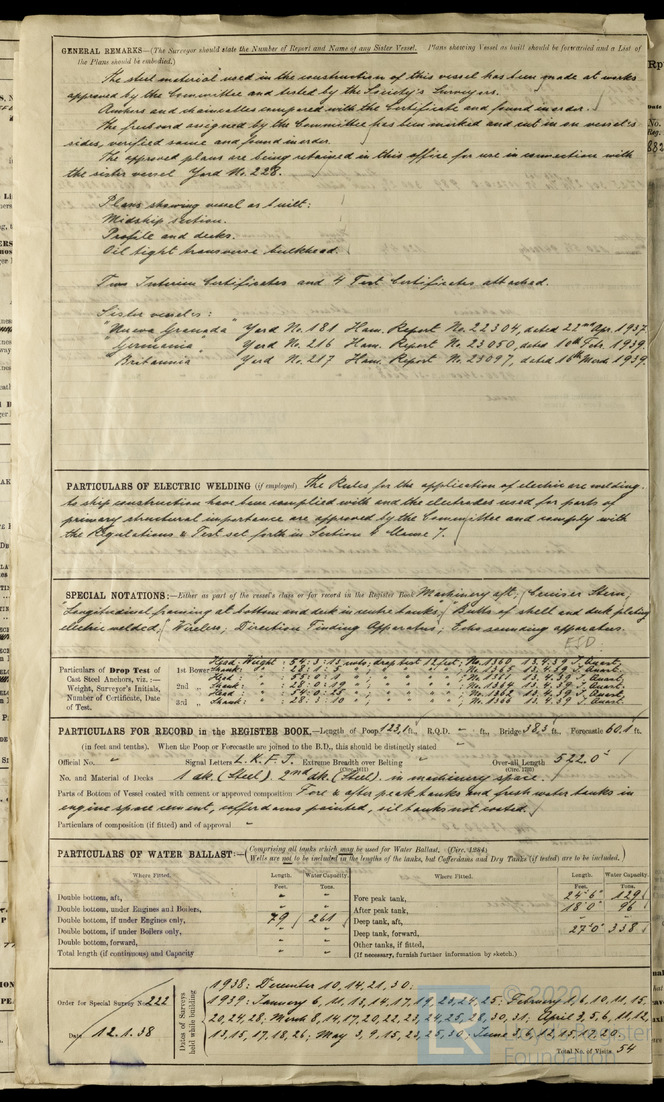 GENERAL REMARKS—(The Surveyor should state the Number of Report and Name of any Sister Vessel. Plans showing Vessel as built should be forwarded and a List of
the Plans should be embodied.)
The steel material used in the construction of this vessel has been made at works
approved by the Committee and tested by the Society's Surveyors.
Anchors and chaincables compared with the Certificate and found in order.
The freeboard assigned by the Committee has been marked and cut in on vessel's
sides, verified same and found in order.
The approved plans are being retained in this office for use in connection with
the sister vessel Yard No. 228.
Plans showing vessel as built:
Midship section.
Profile and decks.
Oil tight transverse bulkhead.
Two Interim Certificates and 4 Test Certificates attached.
Sister vessels:
"Nueva Granada" Yard No. 181 Ham. Report No. 22304, dated 22nd Apr. 1937.
"Germania" Yard No. 216 Ham. Report No. 23050, dated 10th Feb. 1939.
"Britannia" Yard No. 217 Ham. Report No. 23097, dated 16th March 1939.
PARTICULARS OF ELECTRIC WELDING (if employed) The Rules for the application of electric arc welding
to ship construction have been complied with and the electrodes used for parts of
primary structural importance are approved by the Committee and comply with
the Regulations & Test set forth in Section 4 Clause 7.
SPECIAL NOTATIONS:—Either as part of the vessel's class or for record in the Register Book Machinery aft; Cruiser Stern;
Longitudinal framing at bottom and deck in centre tanks; Butts of shell and deck plating
electric welded; Wireless; Direction Finding Apparatus; Echo sounding apparatus.
ESD
Particulars of Drop Test of
Cast Steel Anchors, viz. :—
Weight, Surveyor's Initials,
Number of Certificate, Date
of Test.
1st Bower Head: Weight: 54:3:15 cwts; drop test 12 feet; No. 1360, 13.4.39
Shank: 28:1:3 No. 1365 13.4.39
2nd Head: 55:0:1 No. 1361 13.4.39
Shank: 28:0:19 No. 1364 13.4.39
3rd Head: 54:0:25 No. 1362 13.4.39
Shank: 28:3:10 No. 1366 13.4.39
PARTICULARS FOR RECORD in the REGISTER BOOK.—Length of Poop 123.1 ft., R.Q.D. " ft., Bridge 38.3 ft., Forecastle 60.1 ft.
(in feet and tenths). When the Poop or Forecastle are joined to the B.D., this should be distinctly stated "
Official No. " Signal Letters L.K.F.J. Extreme Breadth over Belting " (Circ. 1411) Over-all Length 522.0 (Circ. 1703)
No. and Material of Decks 1 dk. (Steel). 2nd dk. (Steel). in machinery space.
Parts of Bottom of Vessel coated with cement or approved composition Fore & after peak tanks and fresh water tanks in
engine space cement, cofferdams painted, oil tanks not coated.
Particulars of composition (if fitted) and of approval "
PARTICULARS OF WATER BALLAST:—(Comprising all tanks which may be used for Water Ballast. (Circ. 1284)
Wells are not to be included in the lengths of the tanks, but Cofferdams and Dry Tanks (if tested) are to be included.)
Where Fitted. Length. Water Capacity. Where Fitted. Length. Water Capacity.
Feet. Tons. Feet. Tons.
Double bottom, aft, " " Fore peak tank, 24'6" 129
Double bottom, under Engines and Boilers, " " After peak tank, 18'0" 96
Double bottom, if under Engines only, 79 261 Deep tank, aft, " "
Double bottom, if under Boilers only, " " Deep tank, forward, 27'0" 338
Double bottom, forward, " " Other tanks, if fitted, " "
Total length (if continuous) and Capacity " " (If necessary, furnish further information by sketch.)
Order for Special Survey No. 222
Date 12.1.38
Dates of Surveys
held while building
1938: December 10, 14, 21, 30.
1939: January 6, 11, 13, 14, 17, 19, 23, 24, 25. February 1, 6, 10, 11, 15,
20, 24, 28. March 8, 14, 17, 20, 22, 23, 24, 25, 28, 30, 31, April 3, 5, 6, 11, 12,
13, 15, 17, 18, 26, May 3, 9, 15, 23, 25, 30, June 3, 6, 12, 15, 17, 20.
Total No. of Visits 54
© 2020
Lloyd's Register
Foundation
LR